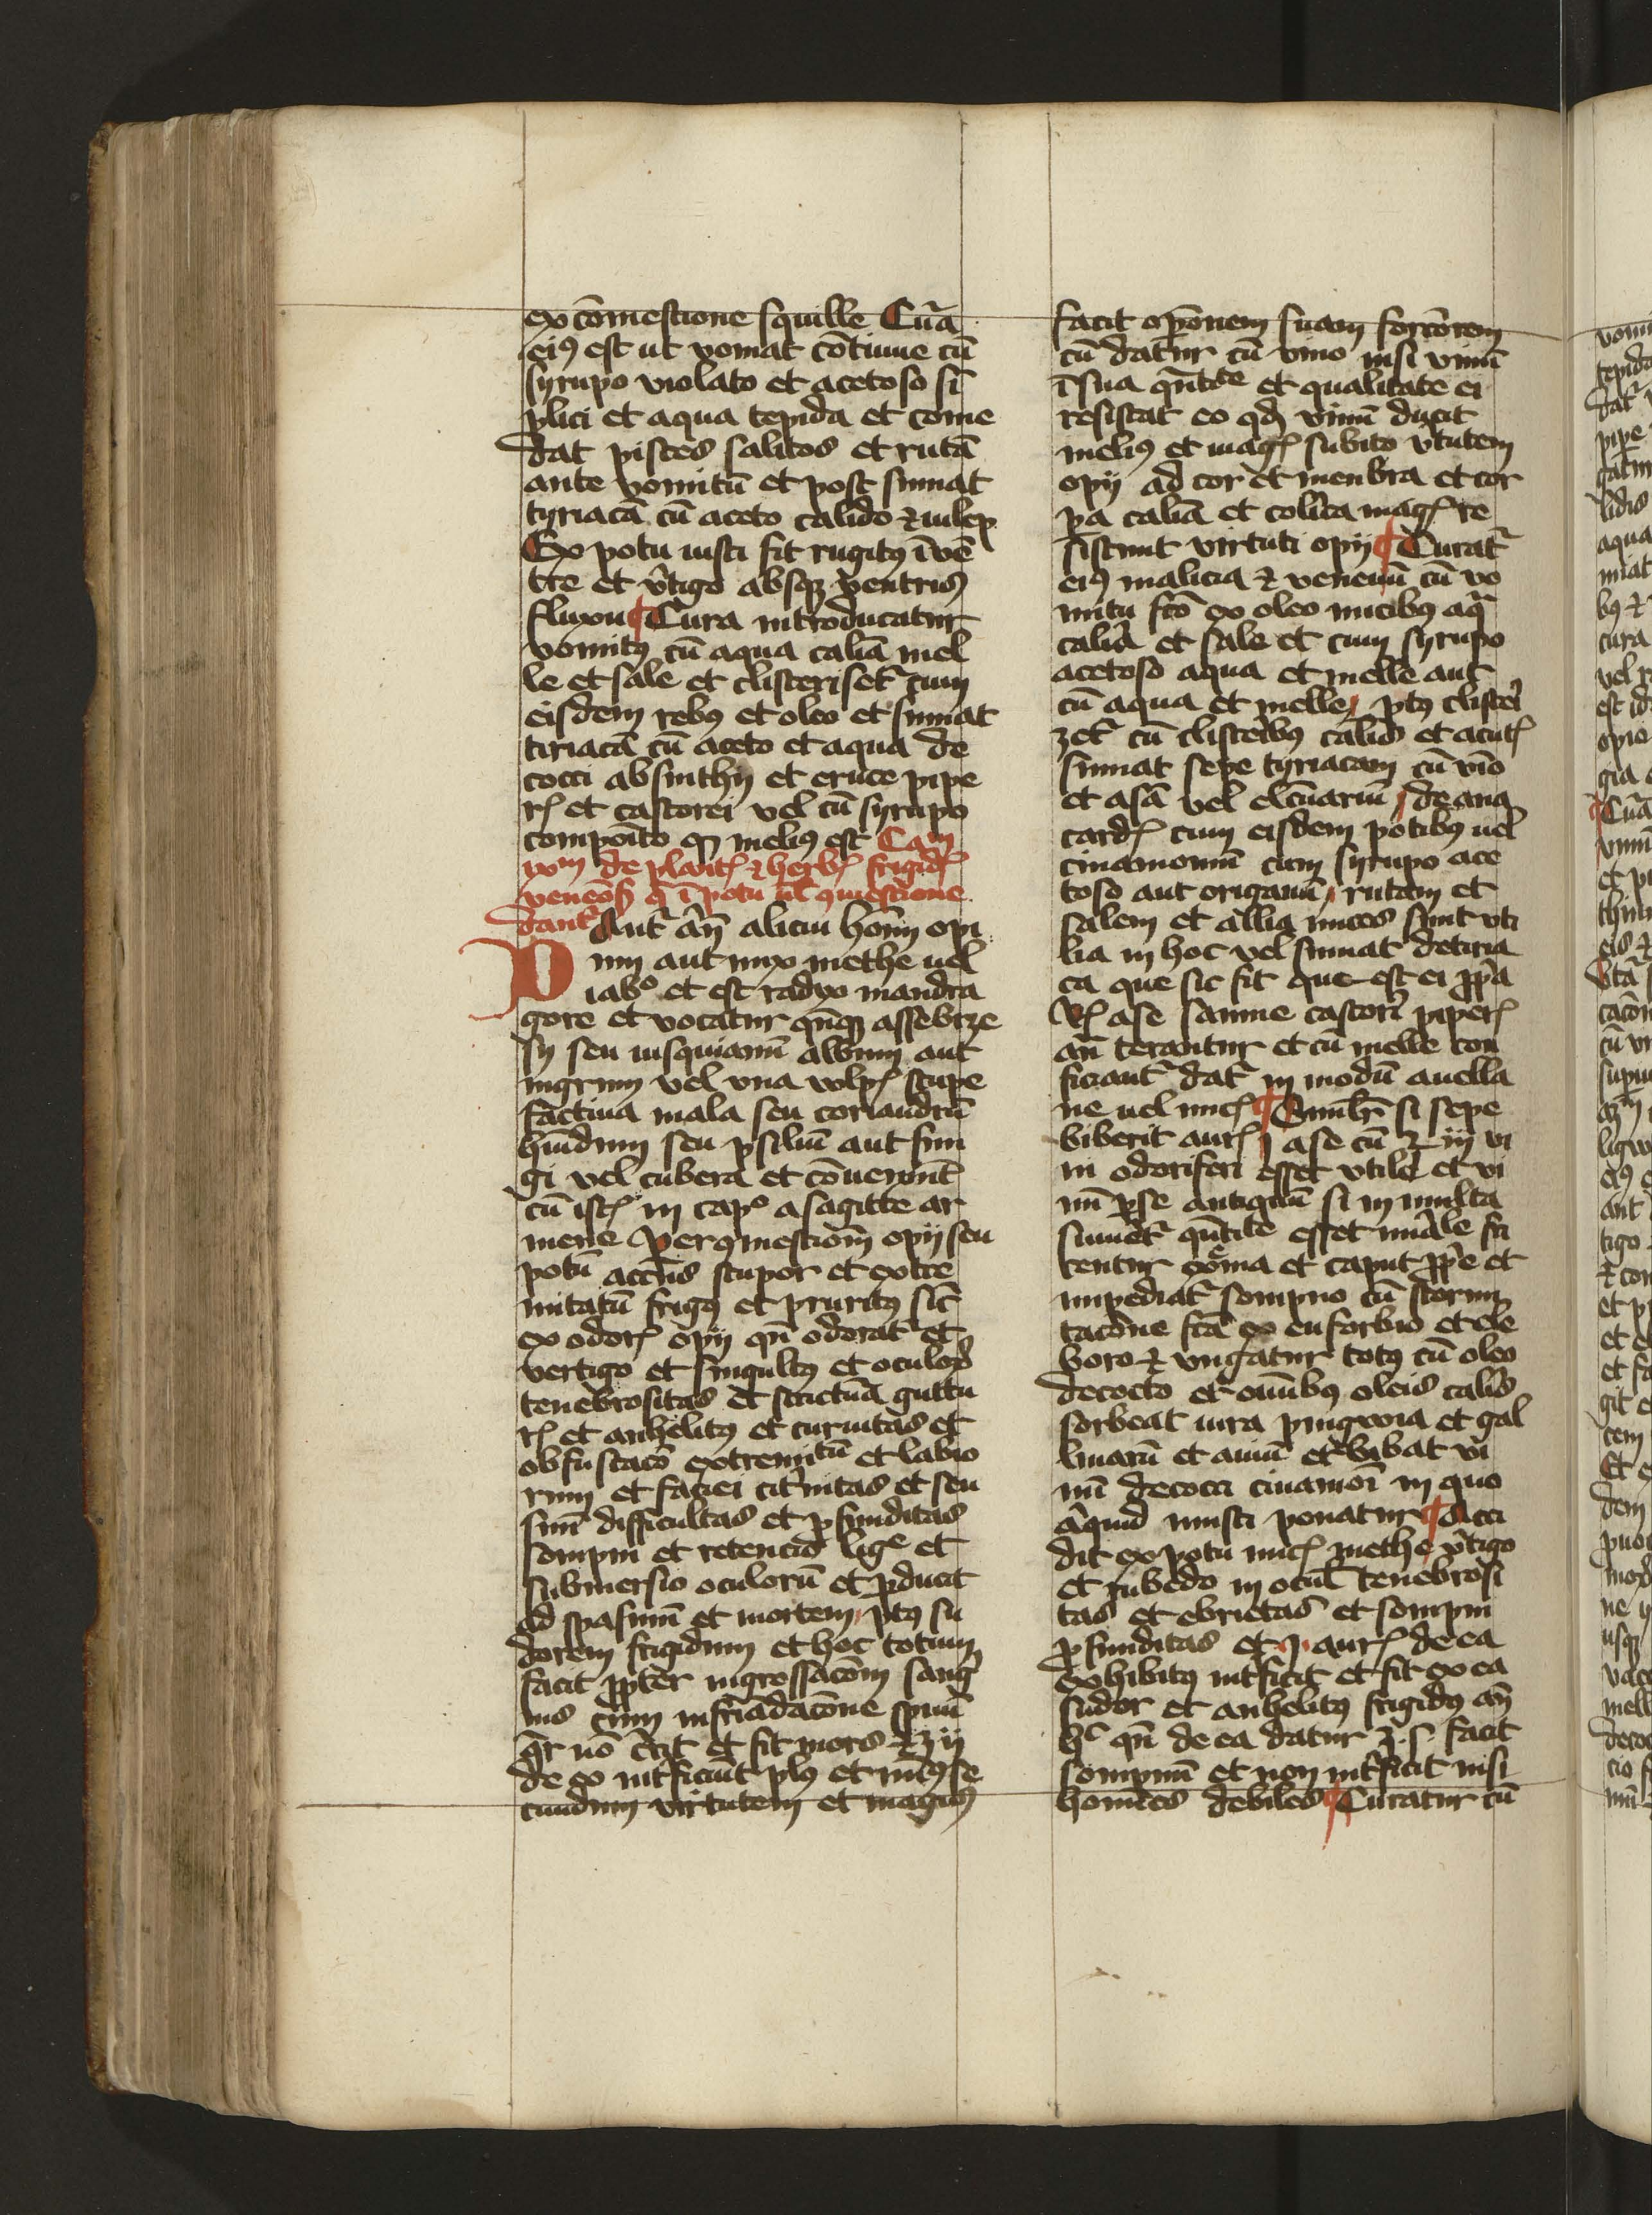 ex cōmestione squille Cur̄a
eiꝰ est ut vomat cōtinue cū
syrupo violato et acetoso sī
plici et aqua tepida et come
dat pisces salitos et rutā
ante vomitū et post sumat
tyriacā cū aceto calido ⁊ iulep
Ex potu iusti fit rugitꝰ ī vē
tre et v̄tigo absqꝫ ventris
fluxu ¶ Cura introducatur
vomitꝰ cū aqua calīa mel
le et sale et clisterisetr̄ cum
eisdem rebꝰ et oleo et sumat
tiriacā cū aceto et aqua de
cocci absinthij et eruce pipe
rꝭ et castorei vel cū syrupo
composito meliꝰ est Cam
de plantꝭ ⁊ herbꝭ frigidꝭ
ī potu ut ꝯmestione
dantr̄ Aut ān alicui hoīm opi
um aut nux methe uel
iabᵒ et est radyx mandra
gore et vocatur qn̄qꝫ
sy seu iusquiamū album aut
nigrum vel vna vulpꝭ stupe
factiua mala seu coriandrū
hūidum seu psiliū aut fun
gi vel tubera et cōuenīunt
cū istꝭ in capᵒ a sagitte ar
mene Per ꝯmestionem opij seu
potū accīns stupor et extre
mitatū frigꝰ et pruritꝰ sic̄
ex odorꝭ opij qn̄ odoratr̄ et
vertigo et singultꝰ et oculoꝝ
tenebrositas et strictur̄a guttu
rꝭ et anhelitꝰ et curuitas et
obfuscacō extremitū et labio
rum et faciei citrinitas et seu
sim̄ difficultas et ꝓfunditas
sompni et retencio ligᵉ et
submersio oculorū et ꝓducit
ad spasmū et mortem ptꝰ su
dorem frigidum et hoc totum
facit ꝓpter ingrossacōm sang
nis cum infrīdacōne spūū
qr̄ nō et fit mors ⁊ ʒ ij
de eo int̄ficiūt plꝰ et mīꝰ se
cundum virtutem et magis
facit opōnem suam forcīorem
cū datur cū vino nisi vinū
ī sua qn̄titate et qualitate ei
resistat eo qđ vinū ducit
meliꝰ et magꝭ subito v̄tutem
opij ad cor et menbra et cor
pa calīa et colica magꝭ re
sistunt virtuti opij ¶ Curatr̄
eiꝰ malicia ⁊ venenū cū vo
mitu fcō ex oleo nucibꝰ aqa
calīa et sale et cum syrupo
acetoso aqua et melle aut
cū aqua et melle ptꝰ clisteri
zetr̄ cū clisteribꝰ calīd et acutꝭ
sumat sepe tyriacam cū vīo
et asā vel elc̄uariū de ana
cardꝭ cum eisdem potibꝰ uel
cinamomū cum syrupo ace
toso aut origanū rutam et
salem et allia nuces sunt vti
lia in hoc vel sumat detiria
ca que sic fit que est ei ꝓpa
Rꝭ ase sanine castorī piperꝭ
an̄ terantur et cū melle con
ficiantr̄ datr̄ in modū auella
ne uel nucꝭ ¶ si sepe
biberit aurꝭ j ase cū iij vi
ni odoriferi esset vtile et vi
nū ꝑ se antiquū si in multa
sumetr̄ qn̄titate esset mirale fri
centur exr̄ma et caput ꝓpe et
impediatr̄ sompno cū sternu
tacōne fcā ex euforbio et ele
boro ⁊ vngatur totꝰ cū oleo
decocto et oībus oleis calīs
sorbeat iura pinguia et gal
linarū et auiū et bibat vi
nū decocci cinamoī in quo
aliquid musti ponatur ¶ Acci
dit ex potu nucꝭ methe v̄tigo
et rubedo in ocul̄ tenebrosi
tas et ebrietas et sompni
ꝓfunditas et j aurꝭ de ea
exhibitꝰ int̄ficit et fit ex ea
sudor et anhelitꝰ frigidꝰ an̄
qn̄ de ea datur ʒ s facit
sompnū et non int̄ficit nisi
homīes debiles ¶ Curatur cū